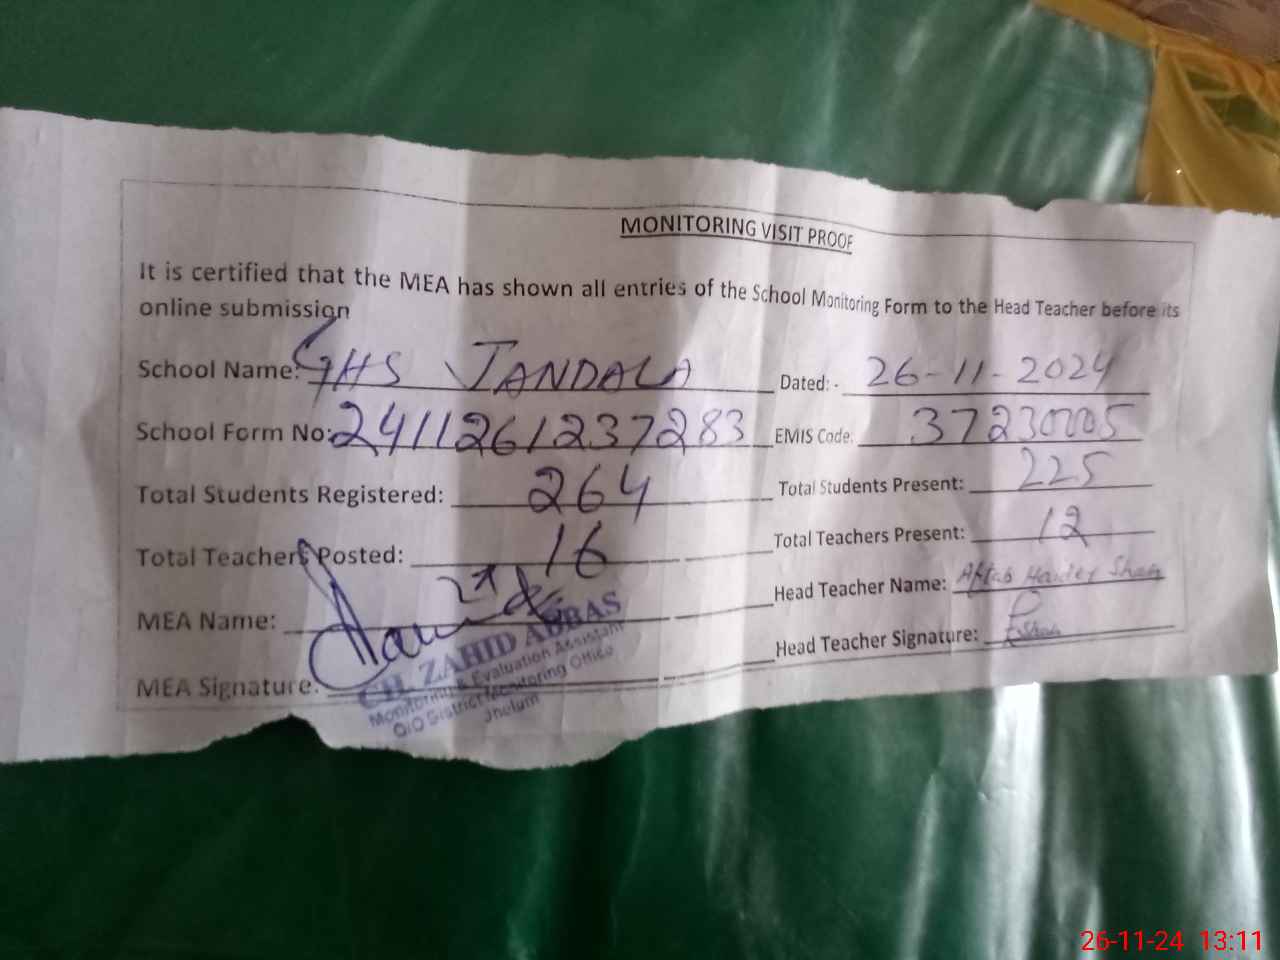 MONITORING VISIT PROOF
It is certified that the MEA has shown all entries of the School Monitoring Form to the Head Teacher before its
online submission
School Name: GHS JANDALA Dated: - 26-11-2024
School Form No: 2411261237283 EMIS Code: 37230005
Total Students Registered: 264 Total Students Present: 225
Total Teachers Posted: 16 Total Teachers Present: 12
MEA Name: Head Teacher Name: Aftab Haider Shah
MEA Signature. Head Teacher Signature:
CH. ZAHID ABBAS
Monitoring & Evaluation Assistant
O/O District Monitoring Office
Jhelum
26-11-24 13:11